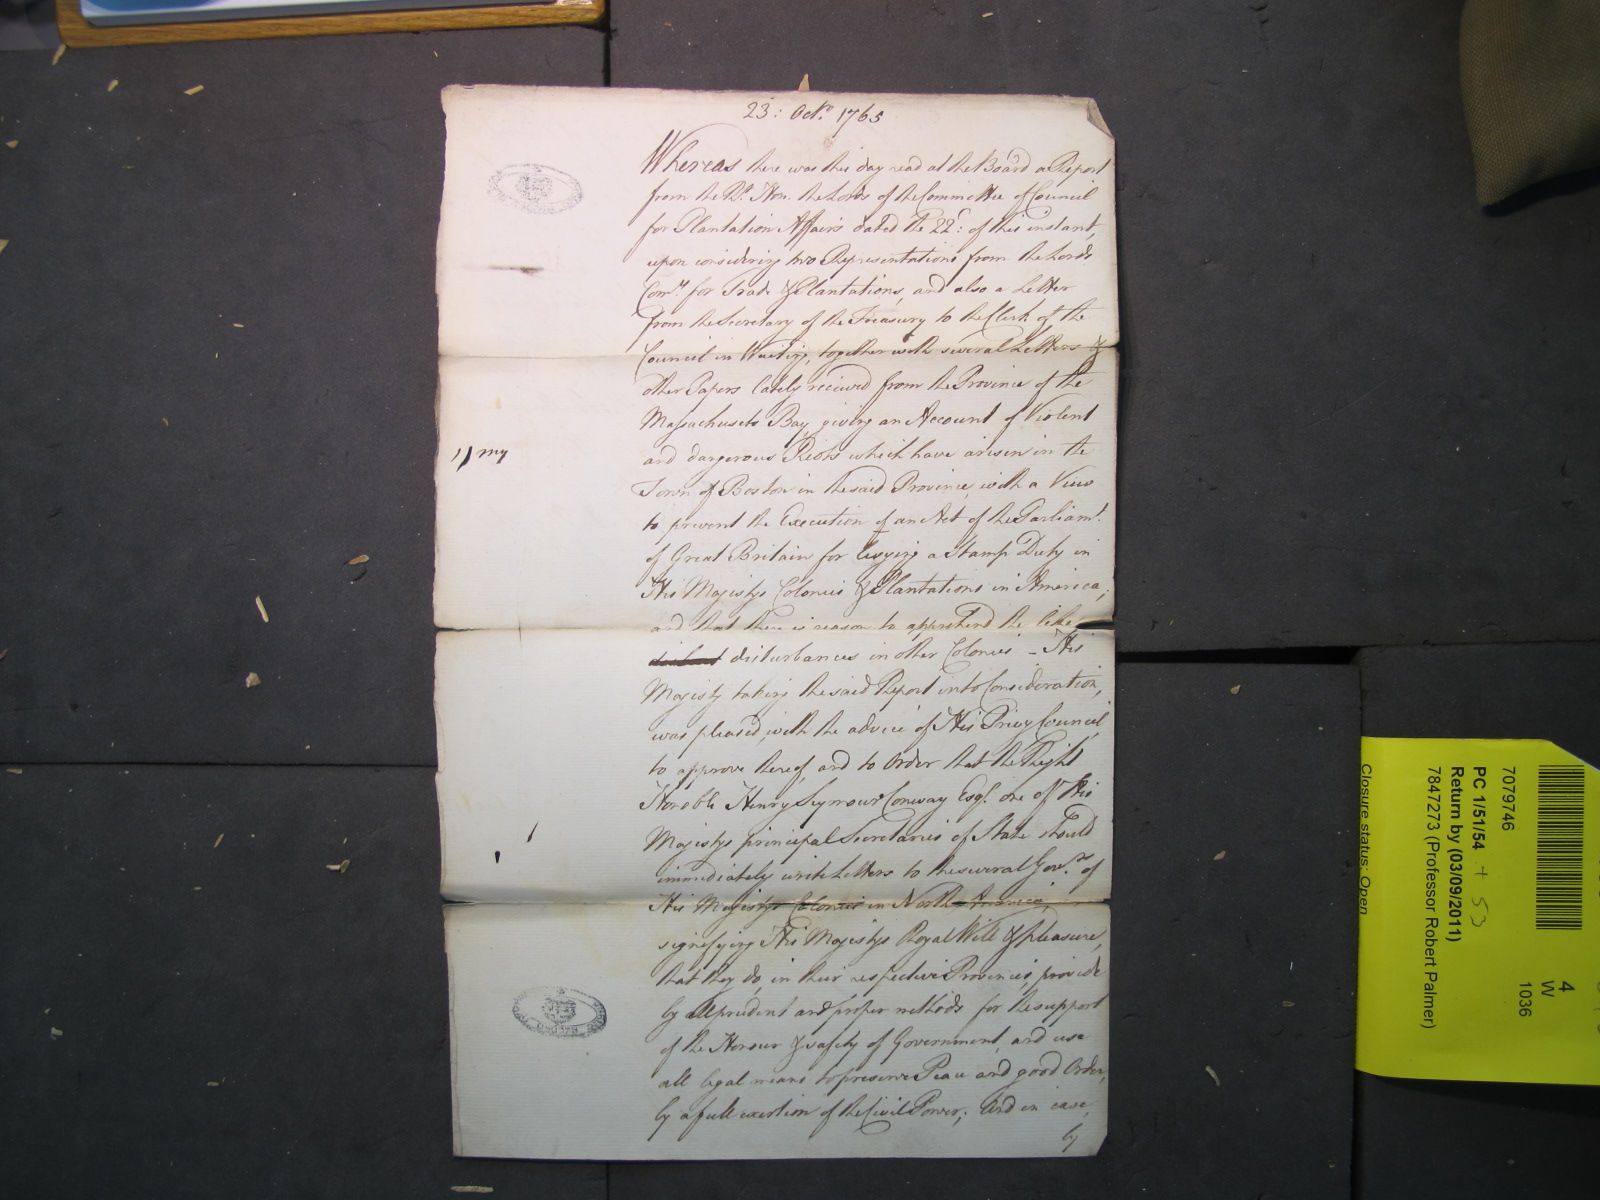 23: Octr. 1765
Whereas there was this day read at the Board a Report
from the Rt. Hon. the Lords of the Committee of Council
for Plantation Affairs dated the 22d: of this instant,
upon considering two Representations from the Lords
Comrs. for Trade & Plantations, and also a Letter
from the Secretary of the Treasury to the Clerk of the
Council in Waiting, together with several Letters &
other Papers lately received from the Province of the
Massachusets Bay, giving an Account of Violent
and dangerous Riots which have arisen in the
Town of Boston in the said Province, with a View
to prevent the Execution of an Act of the Parliamt.
of Great Britain for levying a Stamp Duty in
His Majestys Colonies & Plantations in America;
and that there is reason to apprehend the like
disturbances in other Colonies - His
Majesty taking the said Report into Consideration,
was pleased, with the advice of His Privy Council,
to approve thereof, and to Order that the Right
Honoble Henry Seymour Conway Esqr. one of His
Majestys principal Secretaries of State should
immediately write Letters to the several Govrs. of
His Majestys Colonies in North America,
signifying His Majestys Royal Will & pleasure,
that they do, in their respective Provinces, provide
by all prudent and proper methods for the support
of the Honour & safety of Government, and use
all legal means to preserve Peace and good Order,
by a full exertion of the Civil Power; And in case,
by
my
7079746
PC 1/51/54 + 53
Return by (03/09/2011)
7847273 (Professor Robert Palmer)
Closure status: Open
4
W
1036